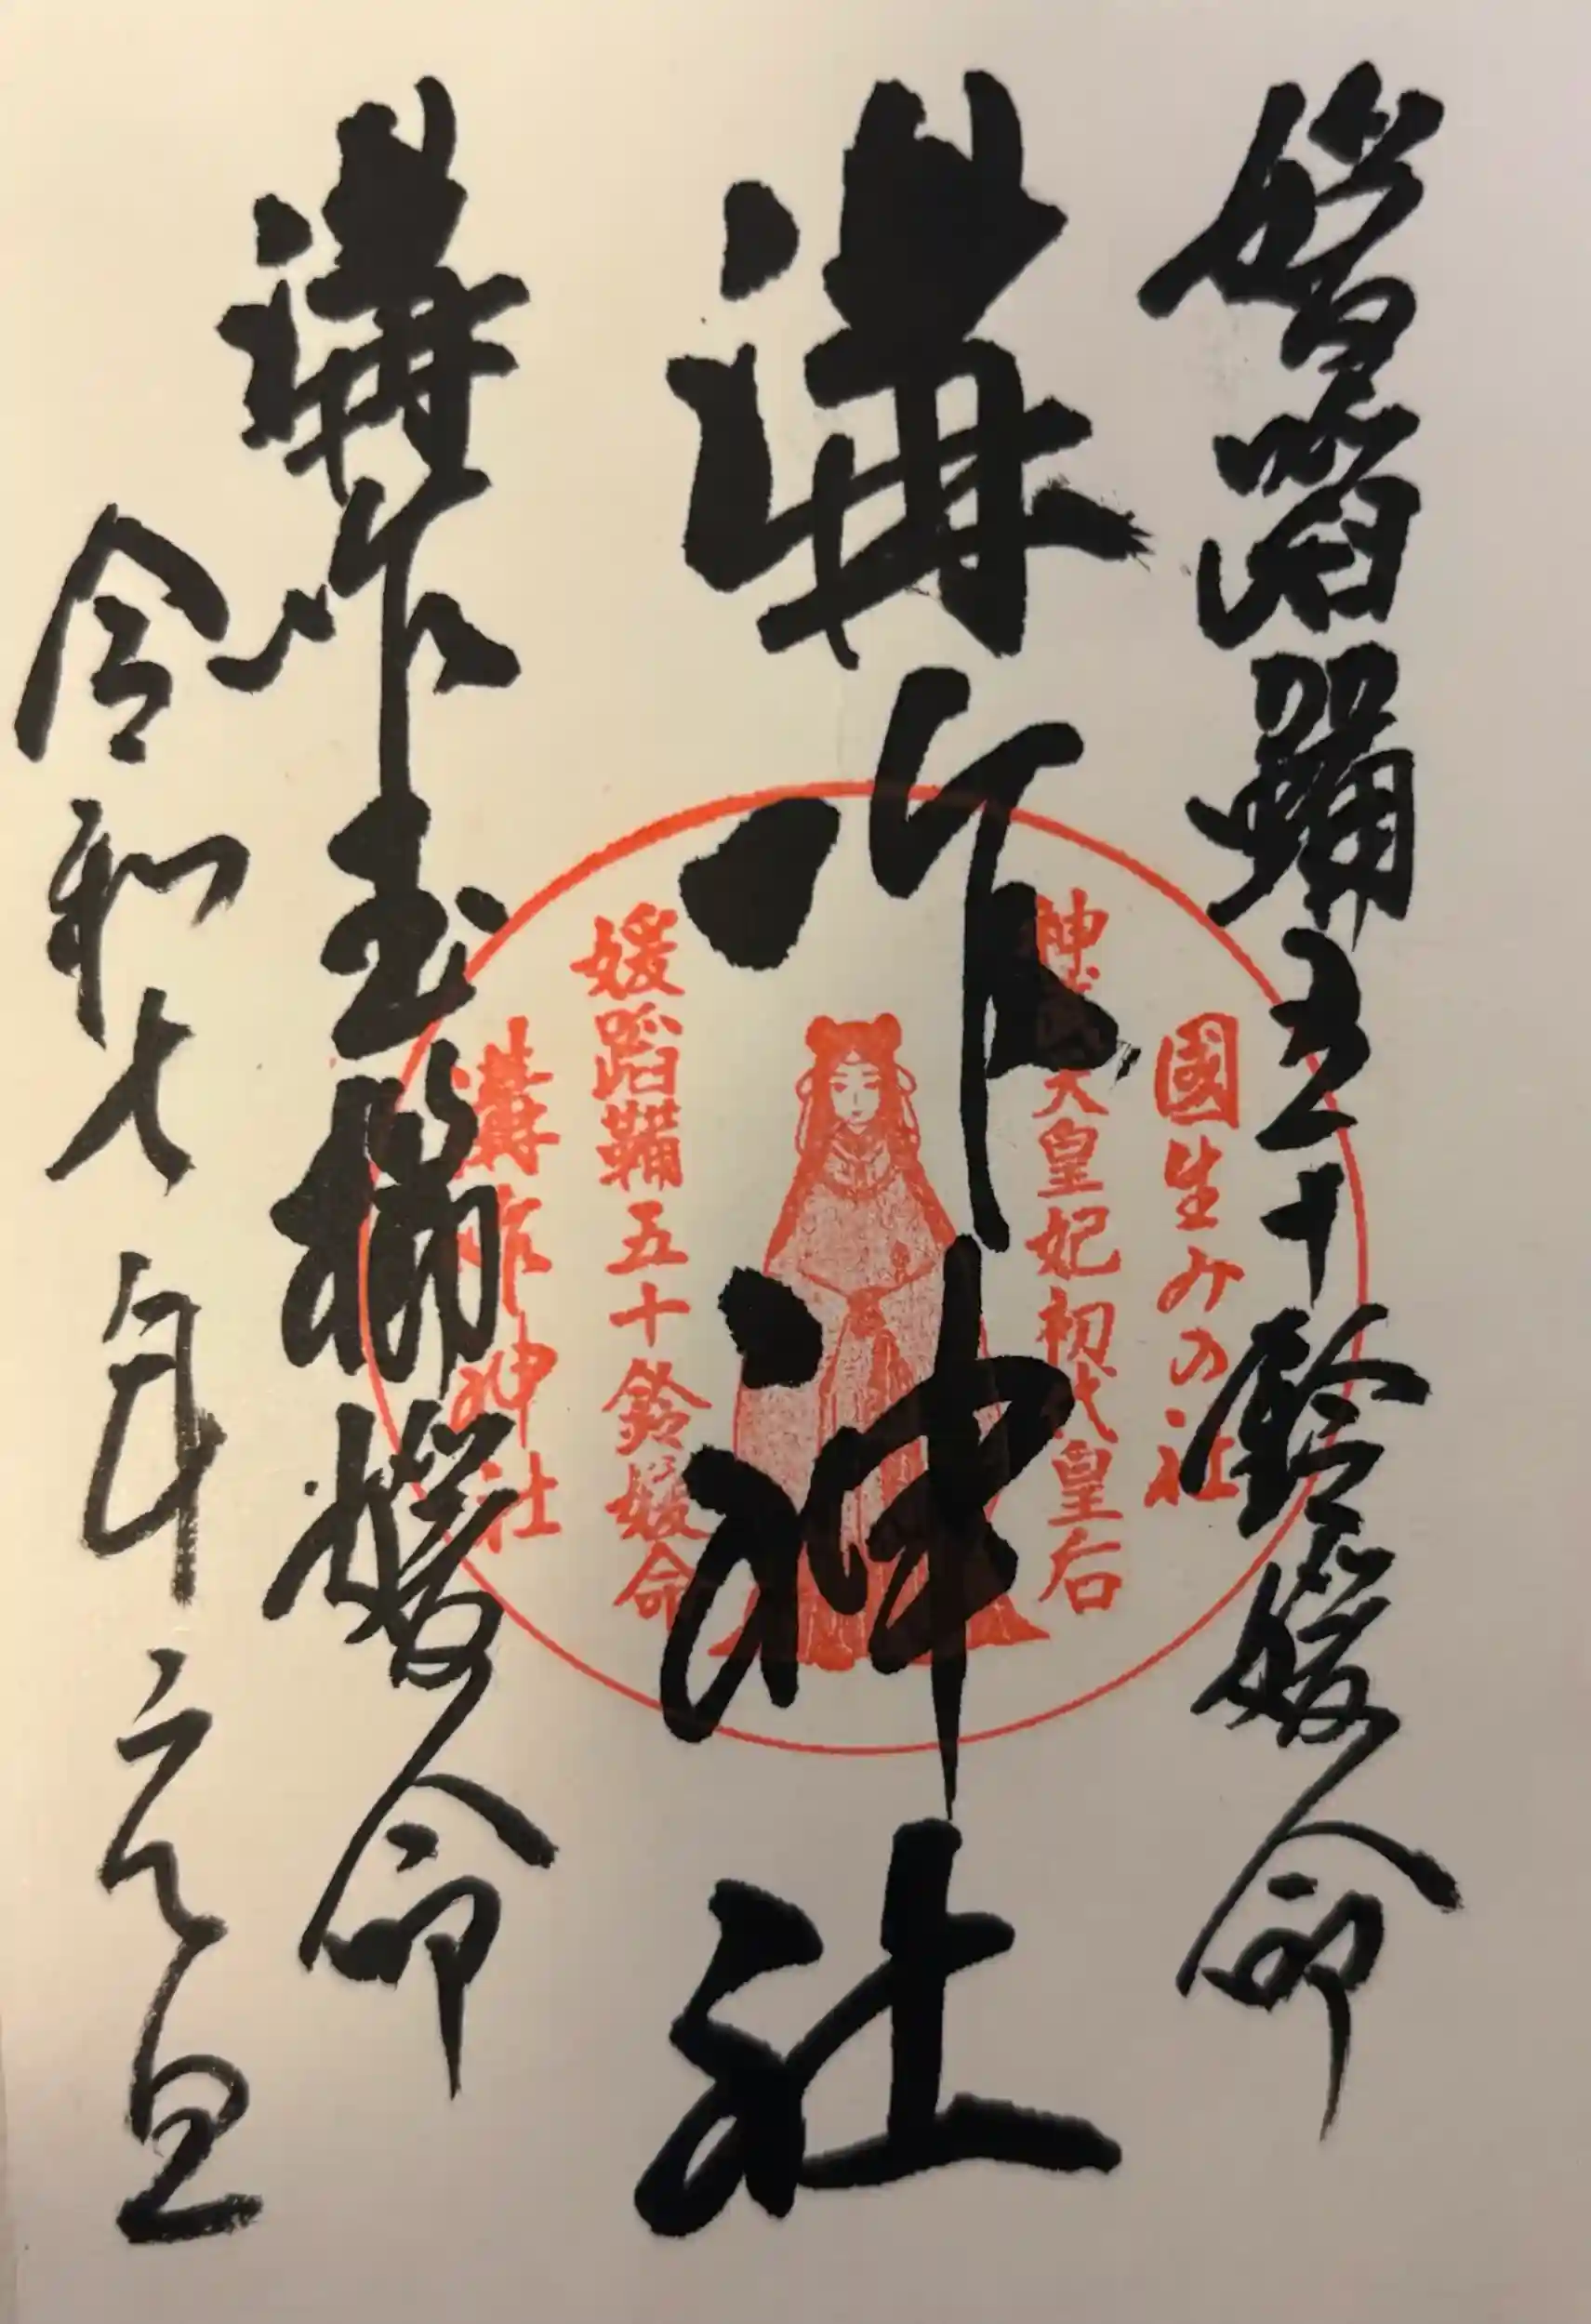 媛蹈鞴五十鈴媛命
溝咋神社
溝咋玉櫛媛命
令和七年元旦
國生みの社
神武天皇妃初代皇后
媛蹈鞴五十鈴媛命
溝咋神社